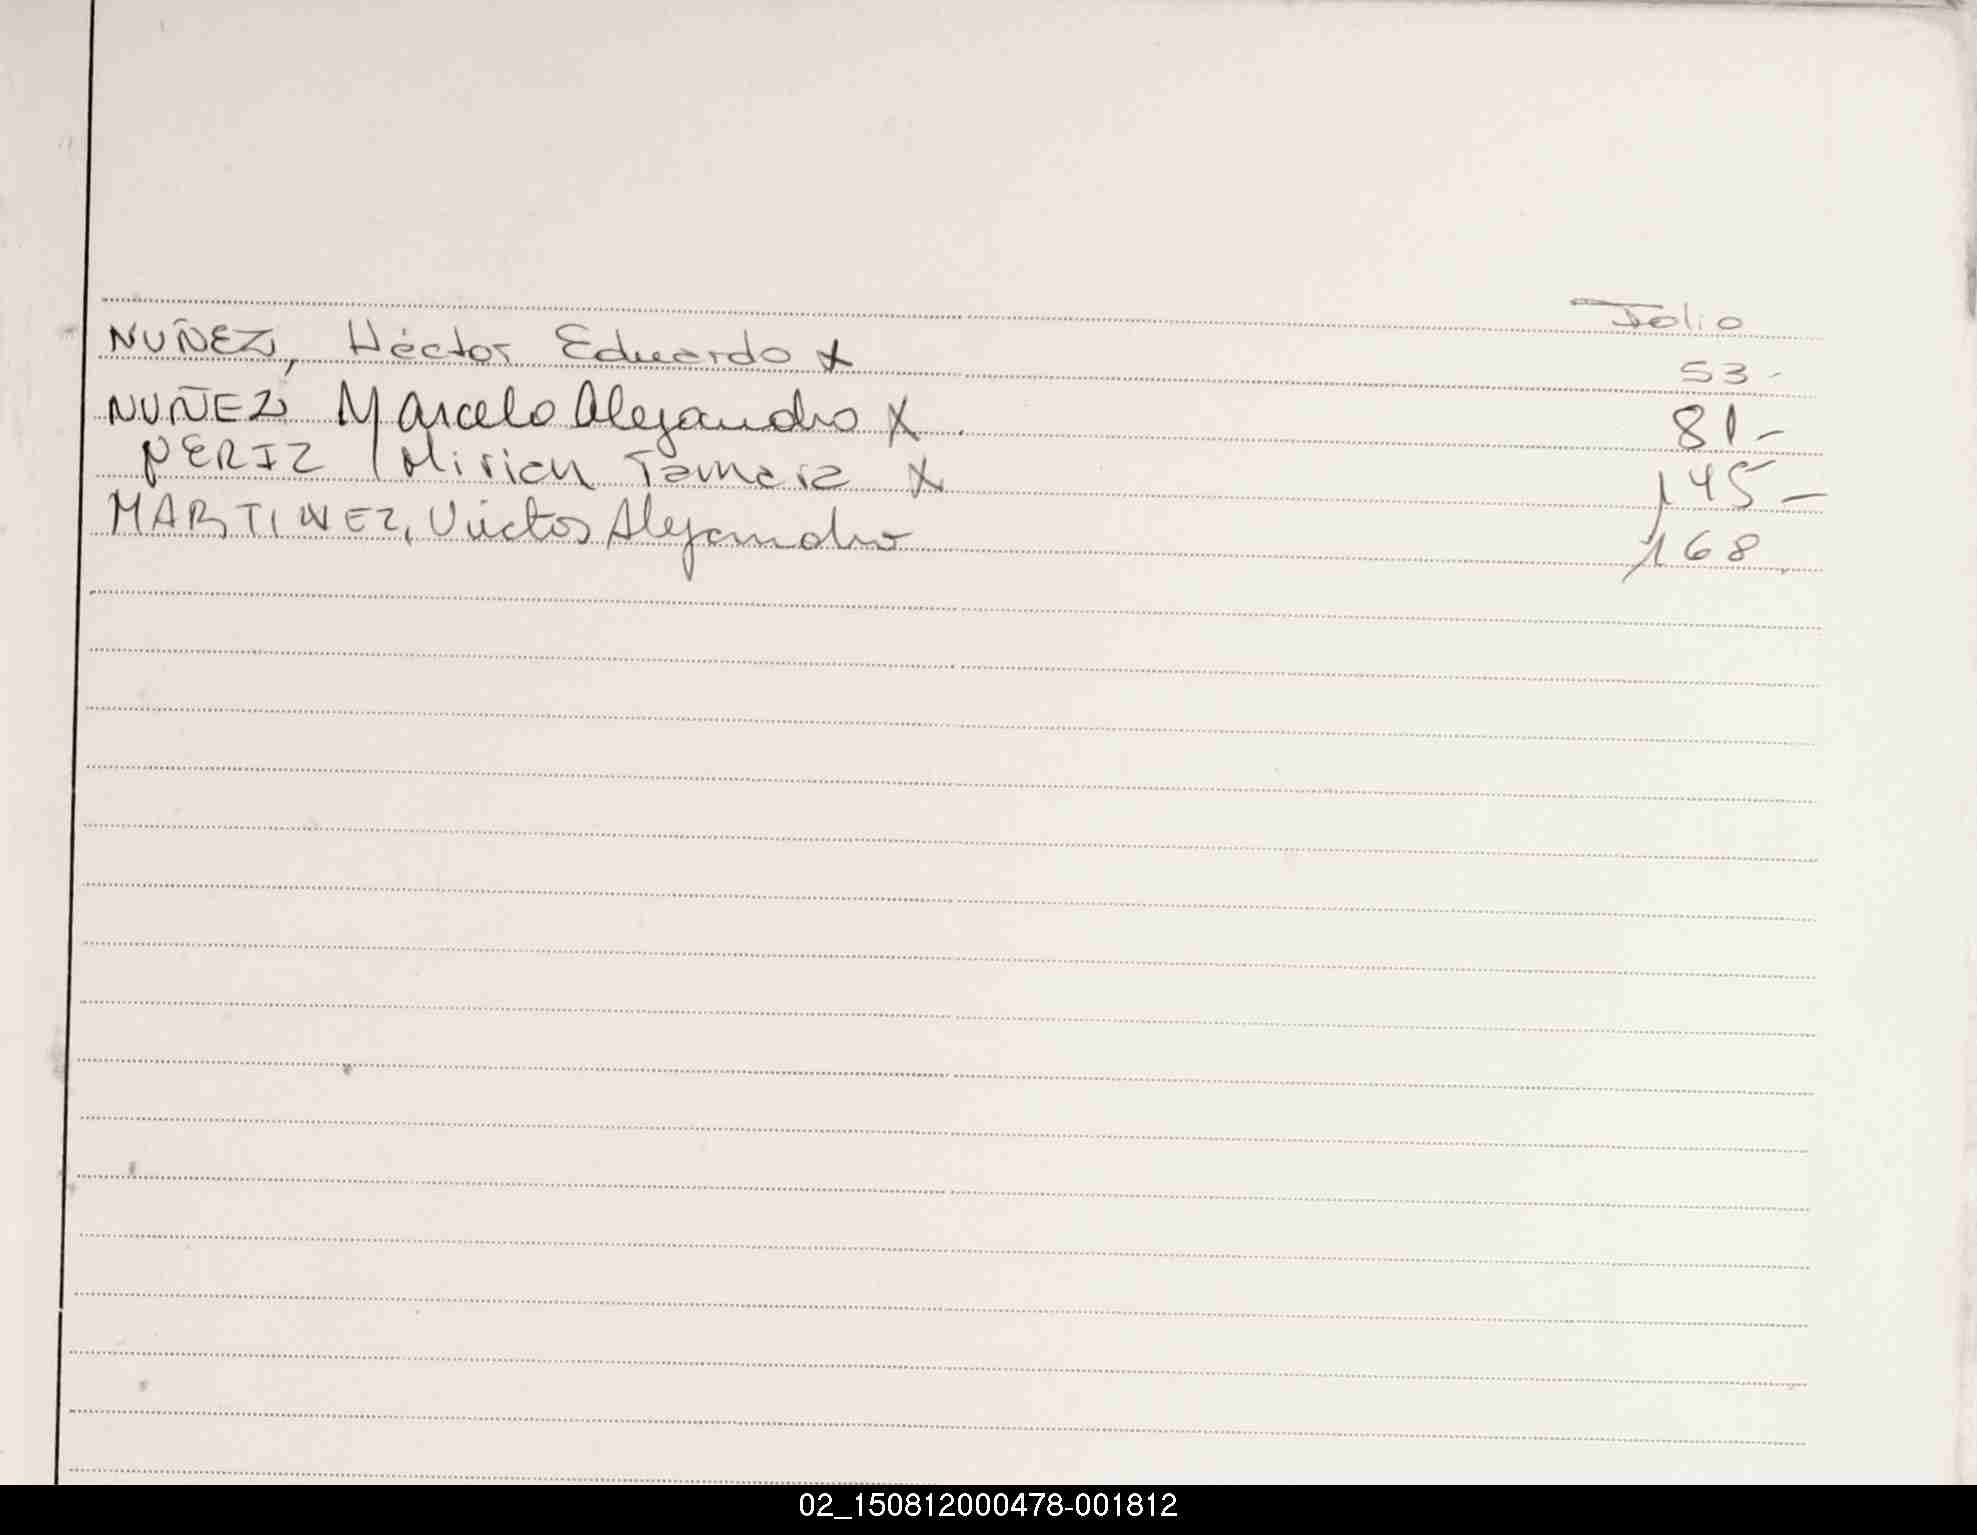 Folio
NUÑEZ, Héctor Eduardo x 53 -
NUÑEZ Marcelo Alejandro X . 81 -
PERIZ Mirian Tamara X 145 -
MARTINEZ, Victor Alejandro 168 .
02_150812000478-001812